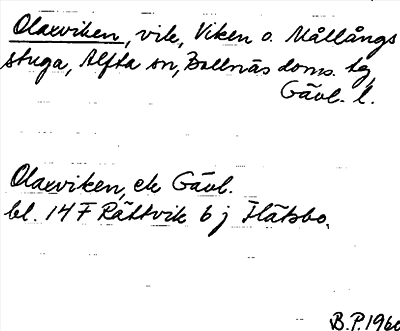 Olarviken, vik, Viken o. Mållångs
stuga, Alfta sn, Bollnäs doms. tg,
Gävl. l.
Olarviken, ek Gävl.
bl. 14 F Rättvik 6 j Flätsbo.
B.P. 1960